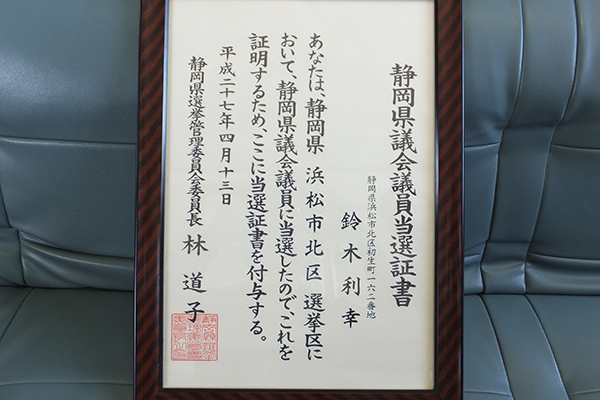 静岡県議会議員当選証書
静岡県浜松市北区初生町一六二番地
鈴木利幸
あなたは、静岡県 浜松市北区 選挙区に
おいて、静岡県議会議員に当選したので、これを
証明するため、ここに当選証書を付与する。
平成二十七年四月十三日
静岡県選挙管理委員会委員長 林 道子